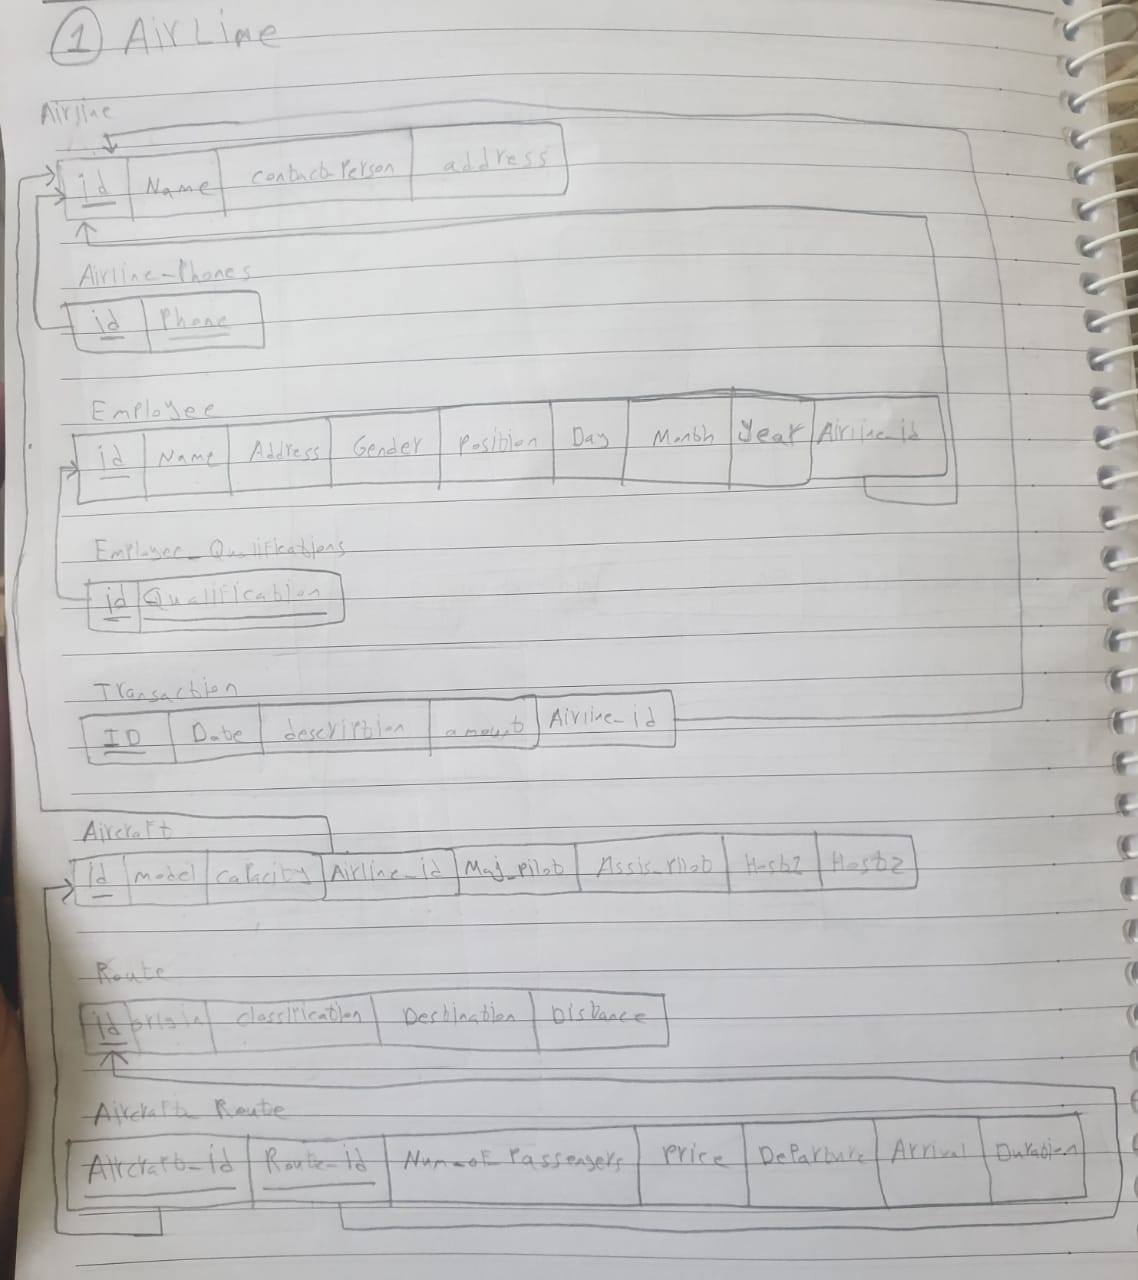 1 AirLine
Airline
id Name Contact-Person address
Airline-Phones
id Phone
Employee
id Name Address Gender Position Day Month Year Airline-id
Employee_Qualifications
id Qualification
Transaction
ID Date description amount Airline_id
Aircraft
id model Capacity Airline_id Maj_pilot Assis_Pilot Host1 Host2
Route
id origin classification Destination Distance
Aircraft Route
Aircraft_id Route_id Num_of Passengers Price Departure Arrival Duration